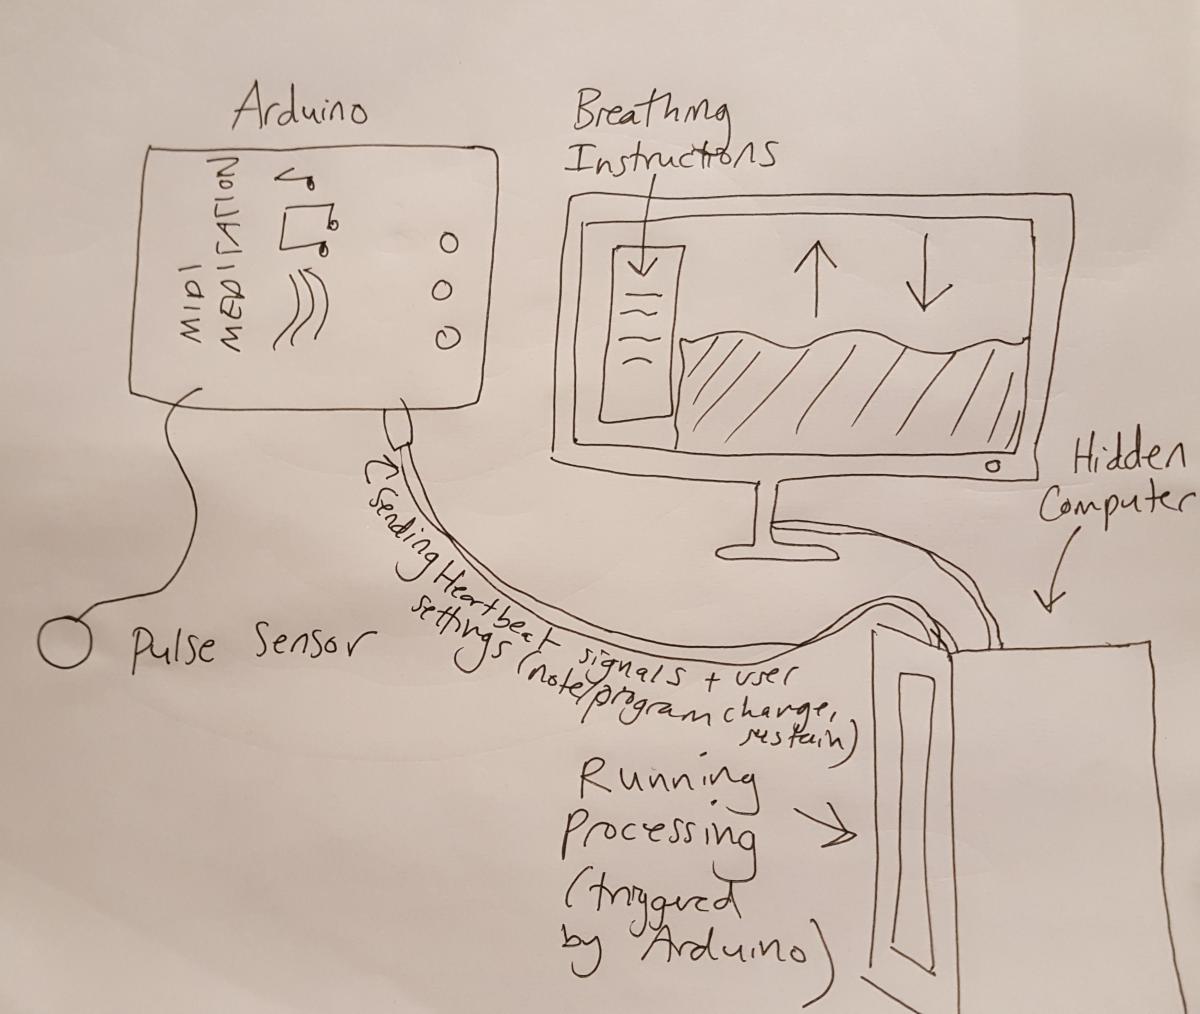 Arduino
MIDI
MEDITATION
Breathing
Instructions
Hidden
Computer
Pulse Sensor
Sending Heartbeat signals + user
settings (note/program change,
sustain)
Running
Processing
(triggered
by Arduino)